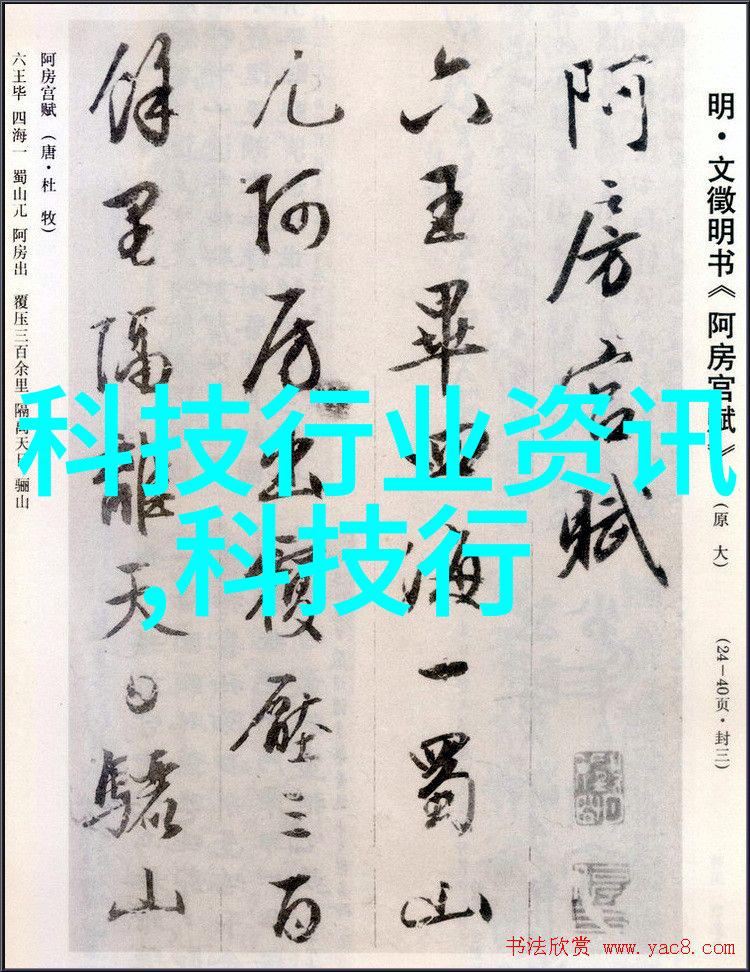 明·文徵明书《阿房宫赋》(原 大) (24—40页·封三)
阿房宫賦
六王畢四海一蜀山
兀阿房出覆壓三百
餘里隔離天日驪山
阿房宫赋(唐·杜 牧)
六王毕 四海一 蜀山兀 阿房出 覆压三百余里 隔离天日 骊山
科技行业资讯
,科技行
书法欣赏 www.yac8.com